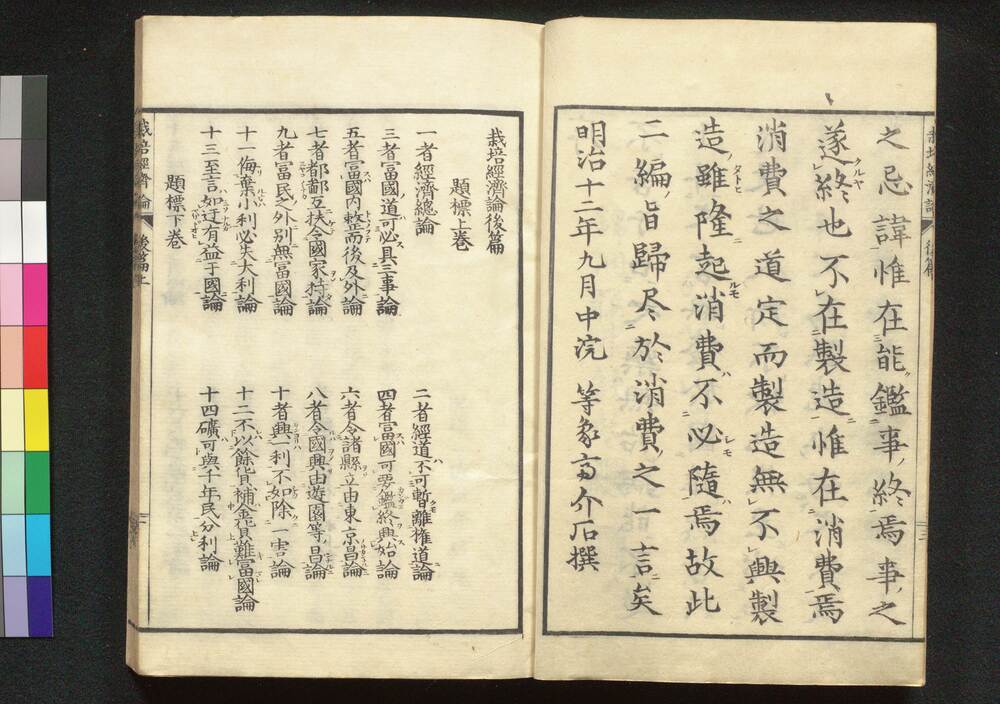 之忌諱惟在能鑑事終焉事之
遂終也不在製造惟在消費焉
消費之道定而製造無不興製
造雖隆起消費不必隨焉故此
二編旨歸尽於消費之一言矣
明治十二年九月中浣 等象斎介石撰
栽培經濟論後篇
題標上巻
一者經濟總論
二者經道不可暫離権道論
三者富國道可必具三事論
四者富國可要鑑終興始論
五者富國内整而後及外論
六者令諸縣立由東京昌論
七者都鄙互扶令國家持論
八者令國興由遊園等昌論
九者富民之外別無富國論
十者興一利不如除一害論
十一侮葉小利必失大利論
十二不以餘貨補金貨難富國論
十三至言如迂有益于國論
十四礦可與千年民分利論
題標下巻
栽培經濟論 後篇上